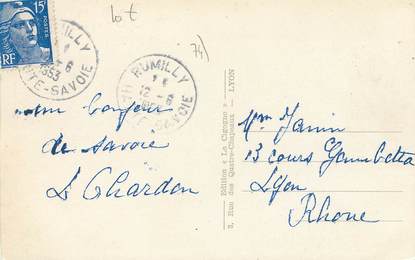 lot
74)
15F
POSTES
RF
RUMILLY
6
1953
HTE-SAVOIE
RUMILLY
12 - 6
SAVOIE
bonjour
de Savoie
L Chardon
Edition « La Cigogne »
3, Rue des Quatre-Chapeaux - LYON
Mme Janin
13 cours Gambetta
Lyon
Rhone